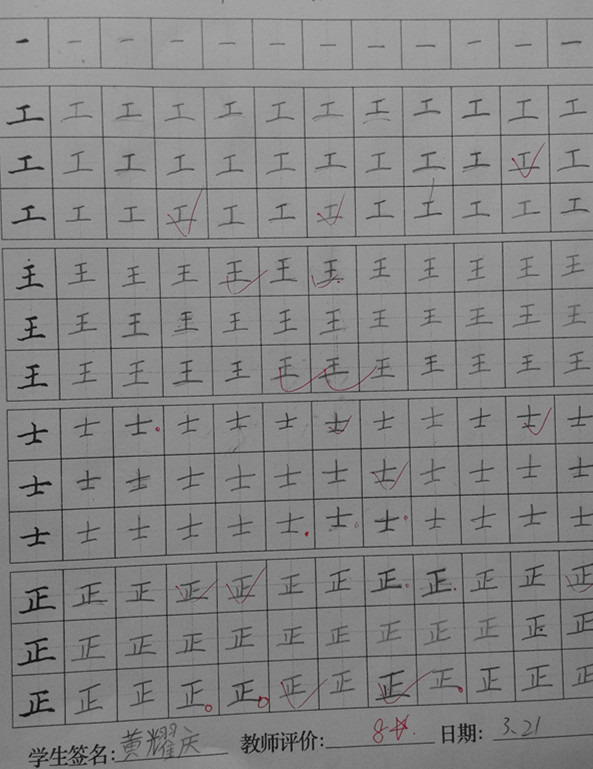 一 一 一 一 一 一 一 一 一 一 一 一
工 工 工 工 工 工 工 工 工 工 工 工
工 工 工 工 工 工 工 工 工 工 工 工
工 工 工 工 工 工 工 工 工 工 工 工
王 王 王 王 王 王 王 王 王 王 王 王
王 王 王 王 王 王 王 王 王 王 王 王
王 王 王 王 王 王 王 王 王 王 王 王
士 士 士 士 士 士 士 士 士 士 士 士
士 士 士 士 士 士 士 士 士 士 士 士
士 士 士 士 士 士 士 士 士 士 士 士
正 正 正 正 正 正 正 正 正 正 正 正
正 正 正 正 正 正 正 正 正 正 正 正
正 正 正 正 正 正 正 正 正 正 正 正
学生签名: 黄耀庆 教师评价: 8☆ 日期: 3.21